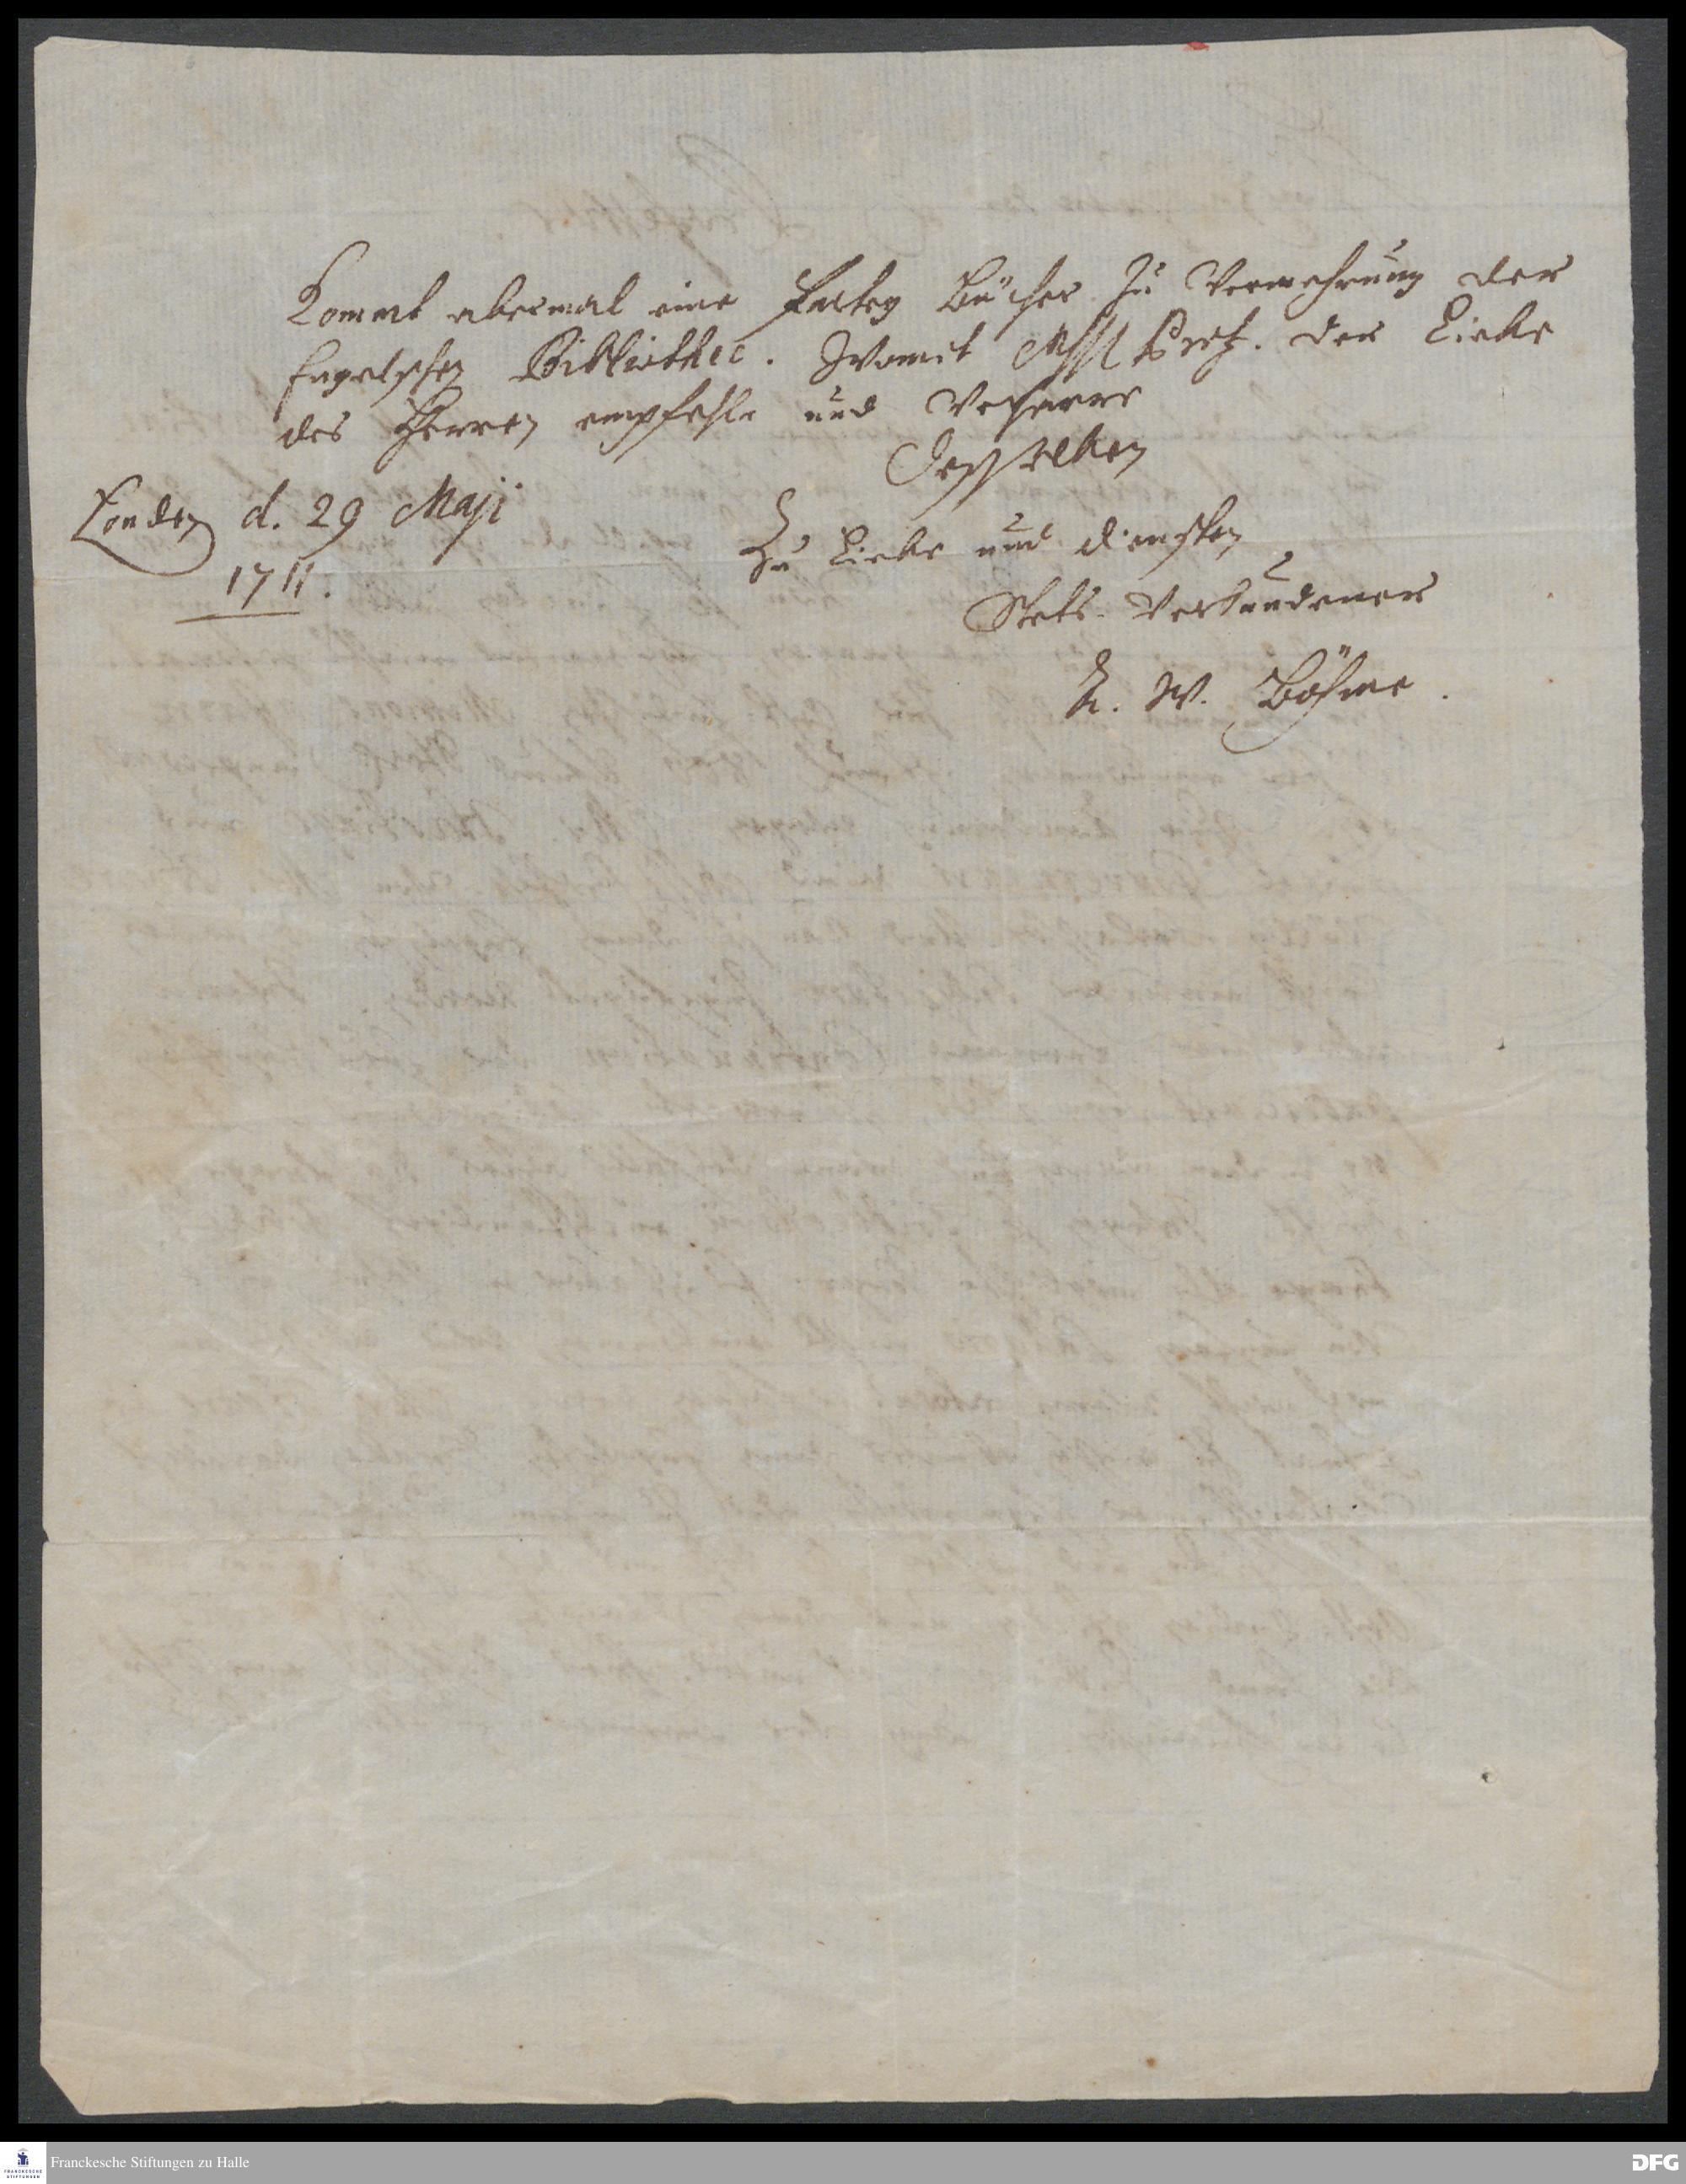 Kommt abermal eine Partey Bücher zu Vermehrung der
Engelschen Bibliothec. Womit der Liebe
des Herren empfehle und Verharre
Desselben
London d. 29 Maji
1711.
Zu Liebe und diensten
Stets-Verbundener
A. W. Böhme.
Franckesche Stiftungen zu Halle
FRANCKESCHE
STIFTUNGEN
DFG